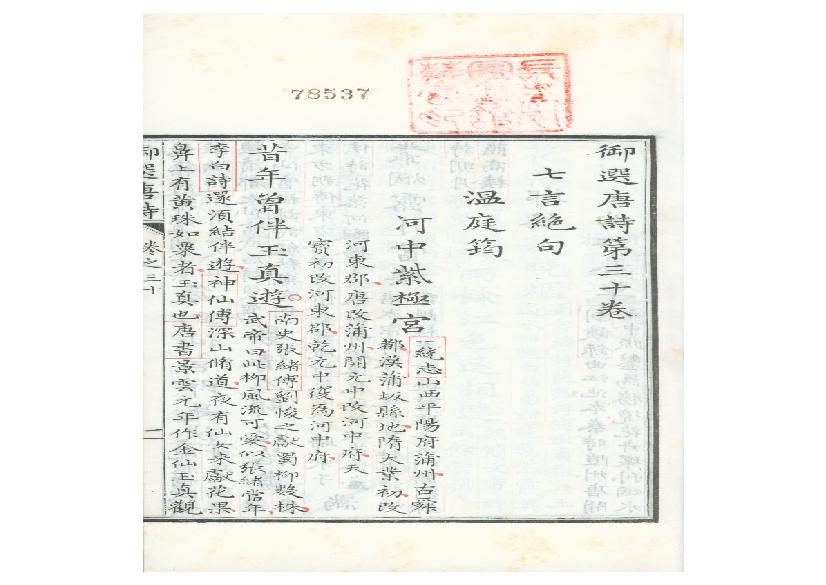 78537
御選唐詩第三十卷
七言絕句
溫庭筠
河中紫極宮
一統志山西平陽府蒲州古舜
都漢蒲坂縣地隋大業初改
河東郡唐改蒲州開元中改河中府天
寶初改河東郡乾元中復為河中府
昔年曾伴玉真遊
南史張緒傳劉悛之獻蜀柳數株
武帝曰此柳風流可愛似張緒當年
李白詩還須結伴遊神仙傳深山脩道夜有仙女來獻花果
鼻上有黃珠如粟者玉真也唐書景雲元年作金仙玉真觀
御選唐詩 卷之三十 一